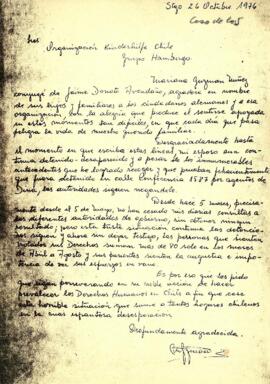 Stgo 26 Octubre, 1976
Caso de los
Sres
Organización Kinderhilfe Chile
Grupo Hamburgo
Mariana Guzmán Nuñez
conyuge de Jaime Donato Avendaño, agradece en nombre de
sus hijos y familiares a los sindicatos alemanes y a esa
organización con la alegría que produce el sentirse apoyada
en estos momentos tan dificiles, en que cada día que pasa
peligra la vida de nuestro querido familiar.
Desgraciadamente hasta
el momento en que escribo estas líneas, mi esposo aún
continua detenido-desaparecido y a pesar de los innumerables
antecedentes que he logrado recoger, y que prueban fehacientemente
que fuera detenido en calle Conferencia 1587 por agentes de
Dina, las autoridades siguen negandolo.
Desde hace 5 meses, precisa-
mente desde el 5 de mayo, no han cesado mis diarias consultas a
las diferentes autoridades de gobierno, sin obtener ningun
resultado; pero esta triste situación continua las detencio-
nes siguen y ahora sin dejar testigos, las personas que sienten
violados sus Derechos suman mas de 90 solo en los meses
de Abril a Agosto y sus parientes sienten la angustia e impo-
tencia de ver sus esfuerzos en vano.
Es por eso que les pido
que sigan perseverando en su noble acción de hacer
prevalecer los Derechos Humanos en Chile a fin que cese
esta horrible situación que sume a tantos hogares chilenos
en la más espantosa desesperación.
Profundamente agradecida.